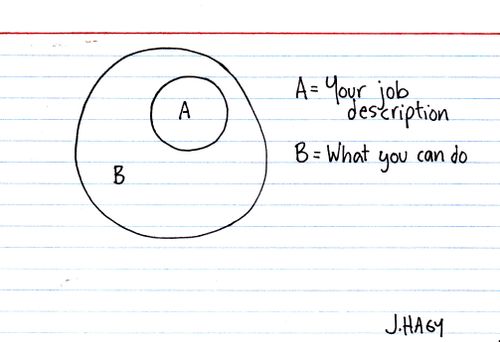 A
B
A = Your job
description
B = What you can do
J.HAGY